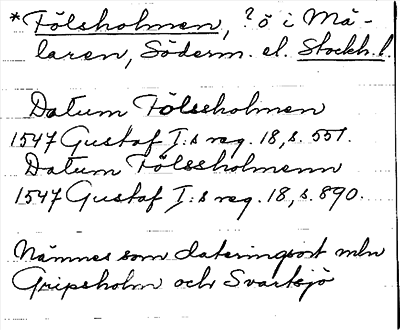 *Fölsholmen, ? ö i Mä-
laren, Söderm. el. Stockh. l.
Datum Fölseholmen
1547 Gustaf I:s reg. 18, s. 551.
Datum Fölssholmenn
1547 Gustaf I:s reg. 18, s. 890.
Nämnes som dateringsort mln
Gripsholm och Svartsjö